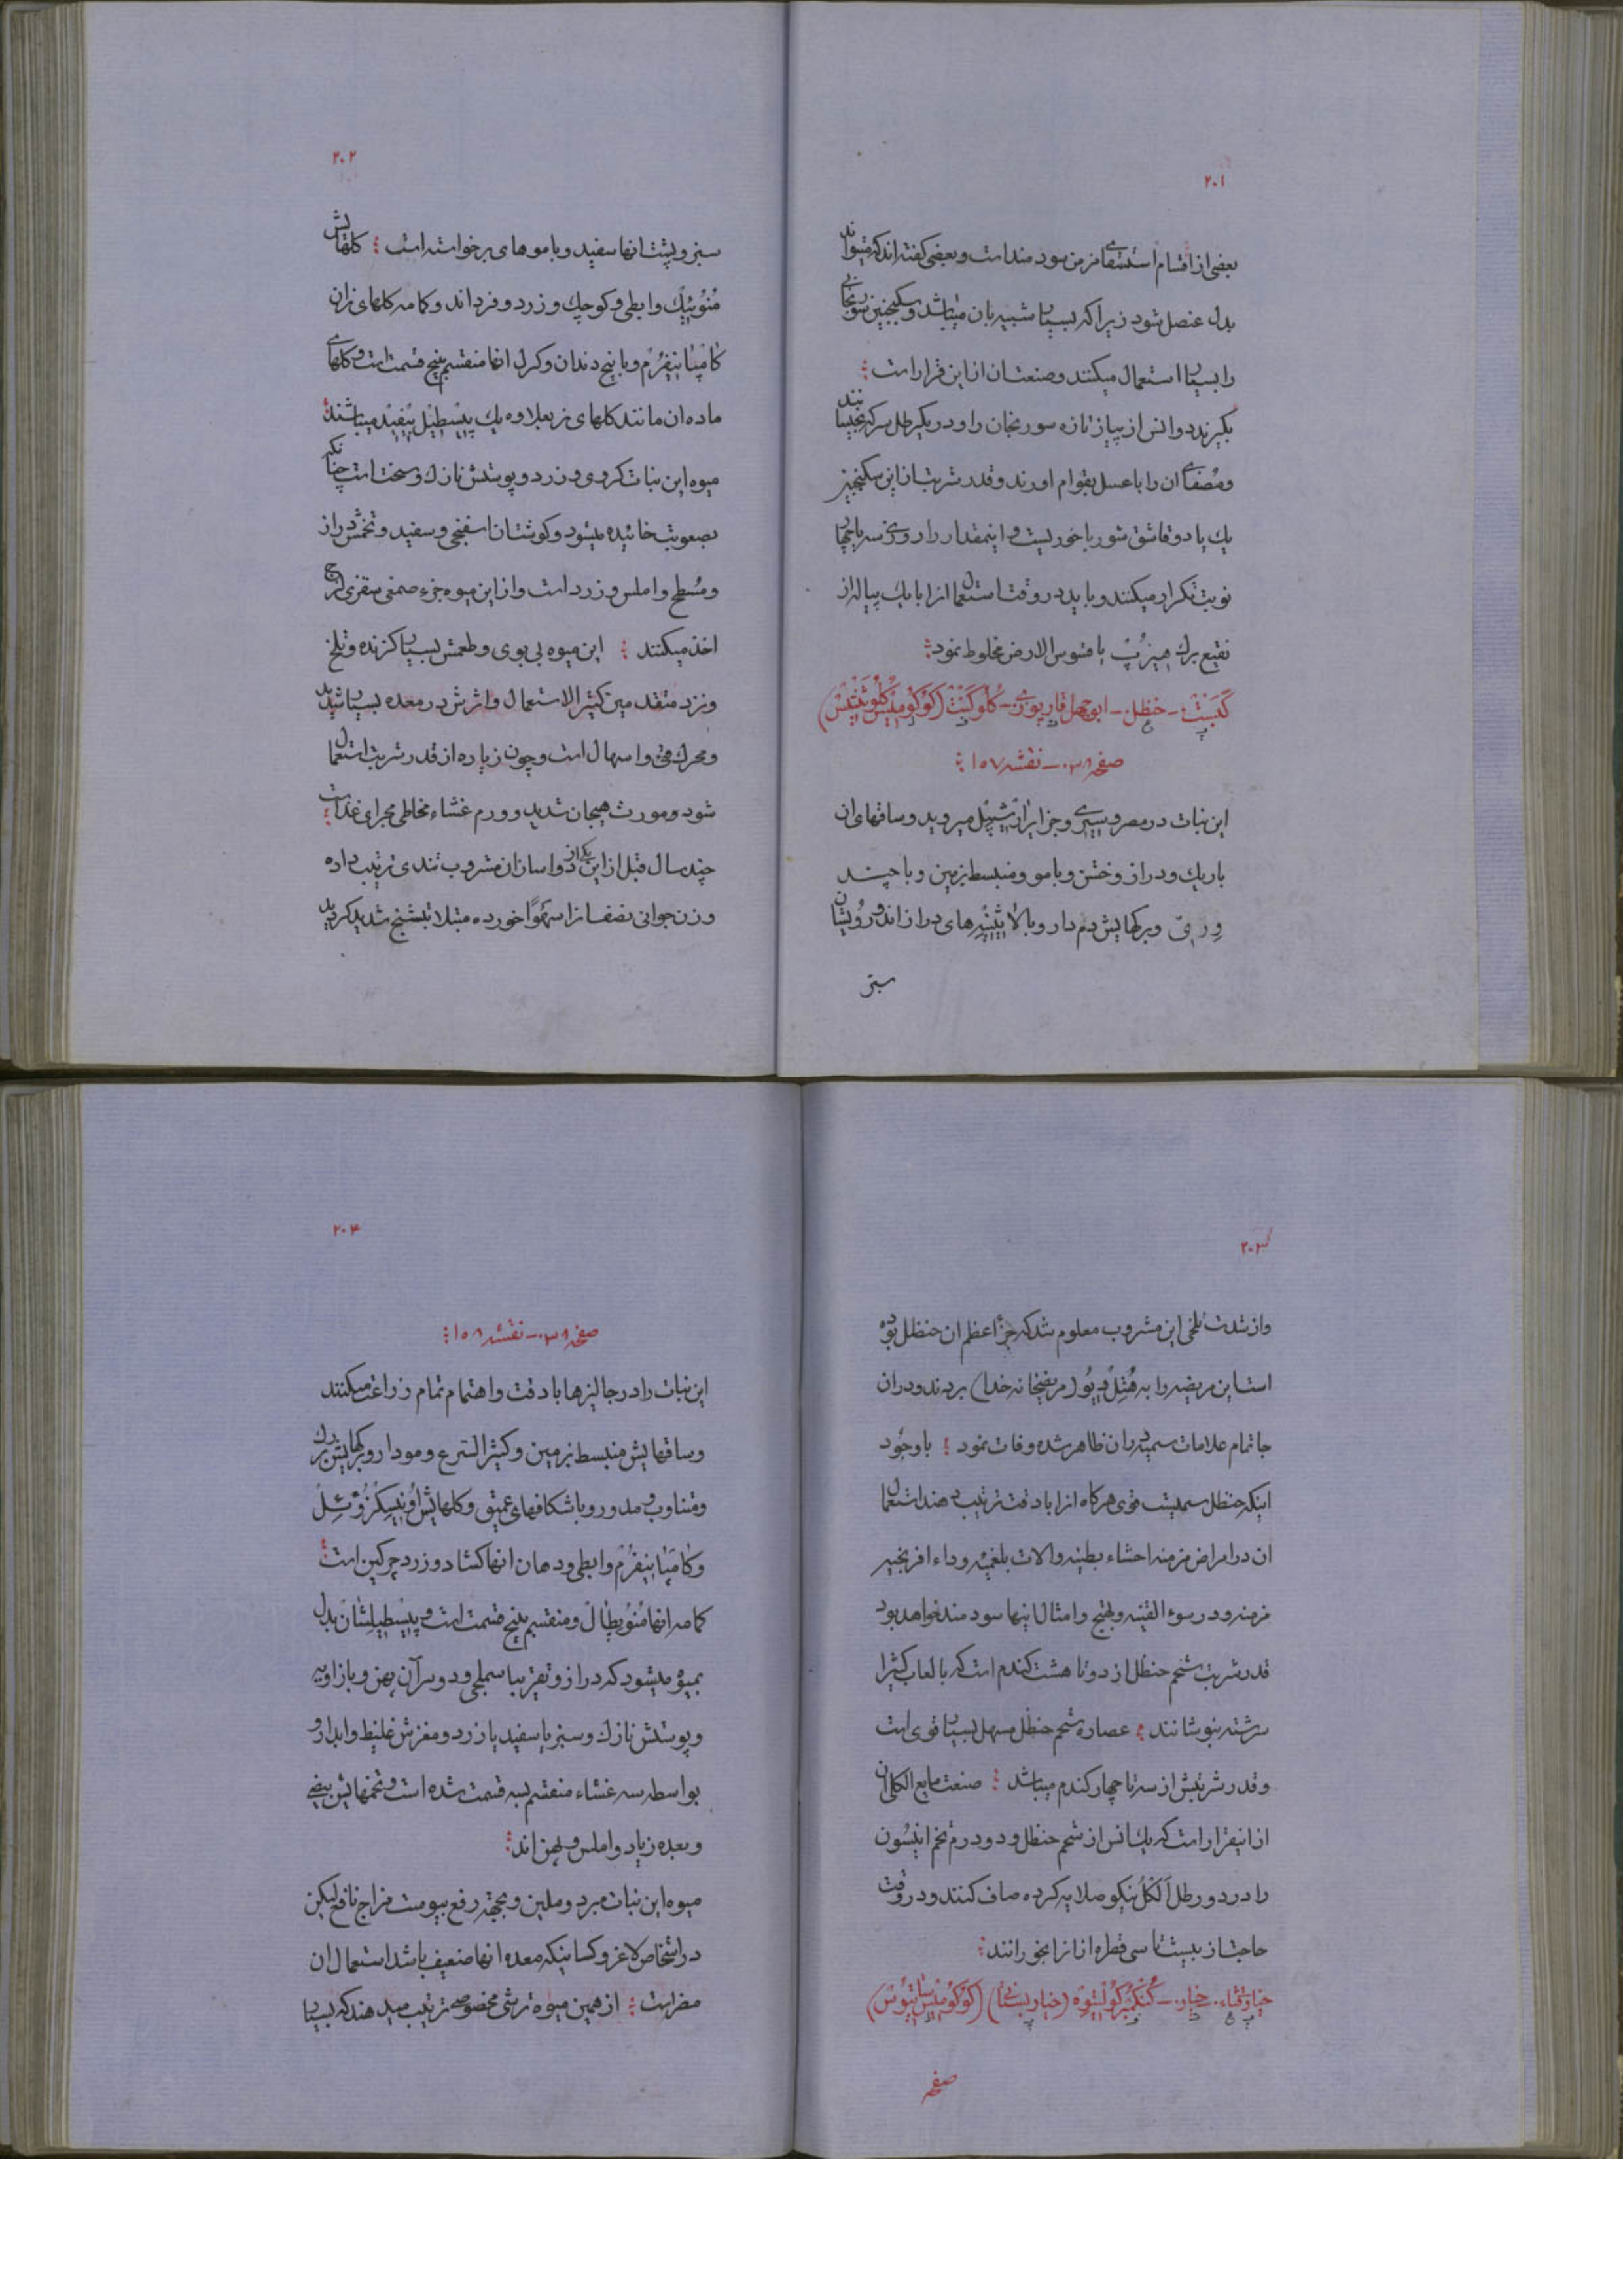 ۲۰۱
بعضی از اقسام استسقای مزمن سودمند است و بعضی کفته اند که میتواند
بدل عنصل شود زیرا که بسیار شبیه بان میباشد و سکنجبین سورنجانی
را بسیار استعمال میکنند و صنعتان از این قرار است
بکیرند دو انس از پیاز تازه سورنجان را و در یکرطل سرکه بخیسانند
و مصفای ان را با عسل بقوام اورند و قدر شربت از این سکنجبین
یك یا دو قاشق شورباخوریست و اینمقدار را روزی سه یا چهار
نوبت تکرار میکنند و باید در وقت استعمال انرا با یك پیاله از
نقیع برك یا فتوس الارض مخلوط نمود
کبست - حنظل - ابوجهل قارپوزی - کلوکنت (کوکومیس کلوثنتس)
صفحه ۳۸ - نقشه ۱۵۷
این نبات در مصر و سیری و جزایر ارشیپل میروید و ساقهای ان
باریك و دراز و خشن و با مو و منبسط بزمین و با چند
وری و برکهایش دم دار و بالا پتیه های دراز اند و رویشان
سبز
۲۰۲
سبز و پشت انها سفید و با موهای برخواسته است کلهایش
منوئیك و ابطی و کوچك و زرد و فرد اند و کامه کلهای نران
کامپانیفرم و با پنج دندان و کرل انها منقسم به پنج قسمت است و کلهای
ماده ان مانند کلهای نر بعلاوه یك پیسطیل تیفید میباشند
میوه این نبات کروی و زرد و پوستش نازك و سخت است چنانکه
بصعوبت خائیده میشود و کوشتان اسفنجی و سفید و تخمش دراز
و مسطح و املس و زرد است و از این میوه جزء صمغی سقزی لزج
اخذ میکنند این میوه بی بوی و طعمش بسیار کزنده و تلخ
و نزد متقدمین کثیرالاستعمال و اثرش در معده بسیار شدید
و محرك قی و اسهال است و چون زیاده از قدر شربت استعمال
شود مورث هیجان شدید و ورم غشاء مخاطی مجرای غذا است
چند سال قبل از این یکی از دواسازان مشروب تندی ترتیب داده
و زن جوانی نصف انرا سهوا خورده مبتلا بتشنج شدید کردید
۲۰۳
و از شدت تلخی این مشروب معلوم شد که جزء اعظم ان حنظل بوده
است این مریضه را به هتل دیو (مریضخانه خدا) بردند و دران
جا تمام علامات سمیه دران ظاهر شده وفات نمود با وجود
اینکه حنظل سمیست قوی هرکاه انرا با دقت ترتیب دهند استعمال
ان در امراض مزمنه احشاء بطنیه والات بلغمیه و داء افرنجیه
مزمنه و در سوء القنیه و تهیج و امثال اینها سودمند خواهد بود
قدر شربت شحم حنظل از دو تا هشت کندم است که با لعاب کتیرا
سرشته بنوشانند عصاره شحم حنظل مسهل بسیار قوی است
و قدر شربتش از سه تا چهار کندم میباشد صنعت مایع الکلی ان
از اینقرار است که یك انس از شحم حنظل و دو درم تخم انیسون
را در دو رطل الکل نیکو صلایه کرده صاف کنند و در وقت
حاجت از بیست تا سی قطره از انرا بخورانند
خیار - قثاء - خیار - کنکمبر کولتیوه (خیار بستانی) (کوکومیس ساتیوس)
صفحه
۲۰۴
صفحه ۳۸ - نقشه ۱۵۸
این نبات را در جالیزها با دقت و اهتمام تمام زراعت میکنند
و ساقهایش منبسط بزمین و کثیر التسرع و مودار و برکهایش بزرك
و متناوب و مدور و با شکافهای عمیق و کلهایش اونیسکزوئل
و کامپانیفرم و ابطی و دهان انها کشاد و زرد چرکین است
کامه انها منوپطال و منقسم به پنج قسمت است و پیسطیلشان بدل
بمیوه میشود که دراز و تقریبا سملجی و دو سر آن پهن و با زاویه
و پوستش نازك و سبز یا سفید یا زرد و مغزش غلیظ و ابدار و
بواسطه سه غشاء منقسم بسه قسمت شده است و تخمهایش بیضی
و بعده زیاد و املس و پهن اند
میوه این نبات مبرد و ملین و بجهة رفع یبوست مزاج نافع لیکن
در اشخاص لاغر و کسانیکه معده انها ضعیف باشد استعمال ان
مضر است از همین میوه ترشی مخصوصی ترتیب میدهند که بسیار